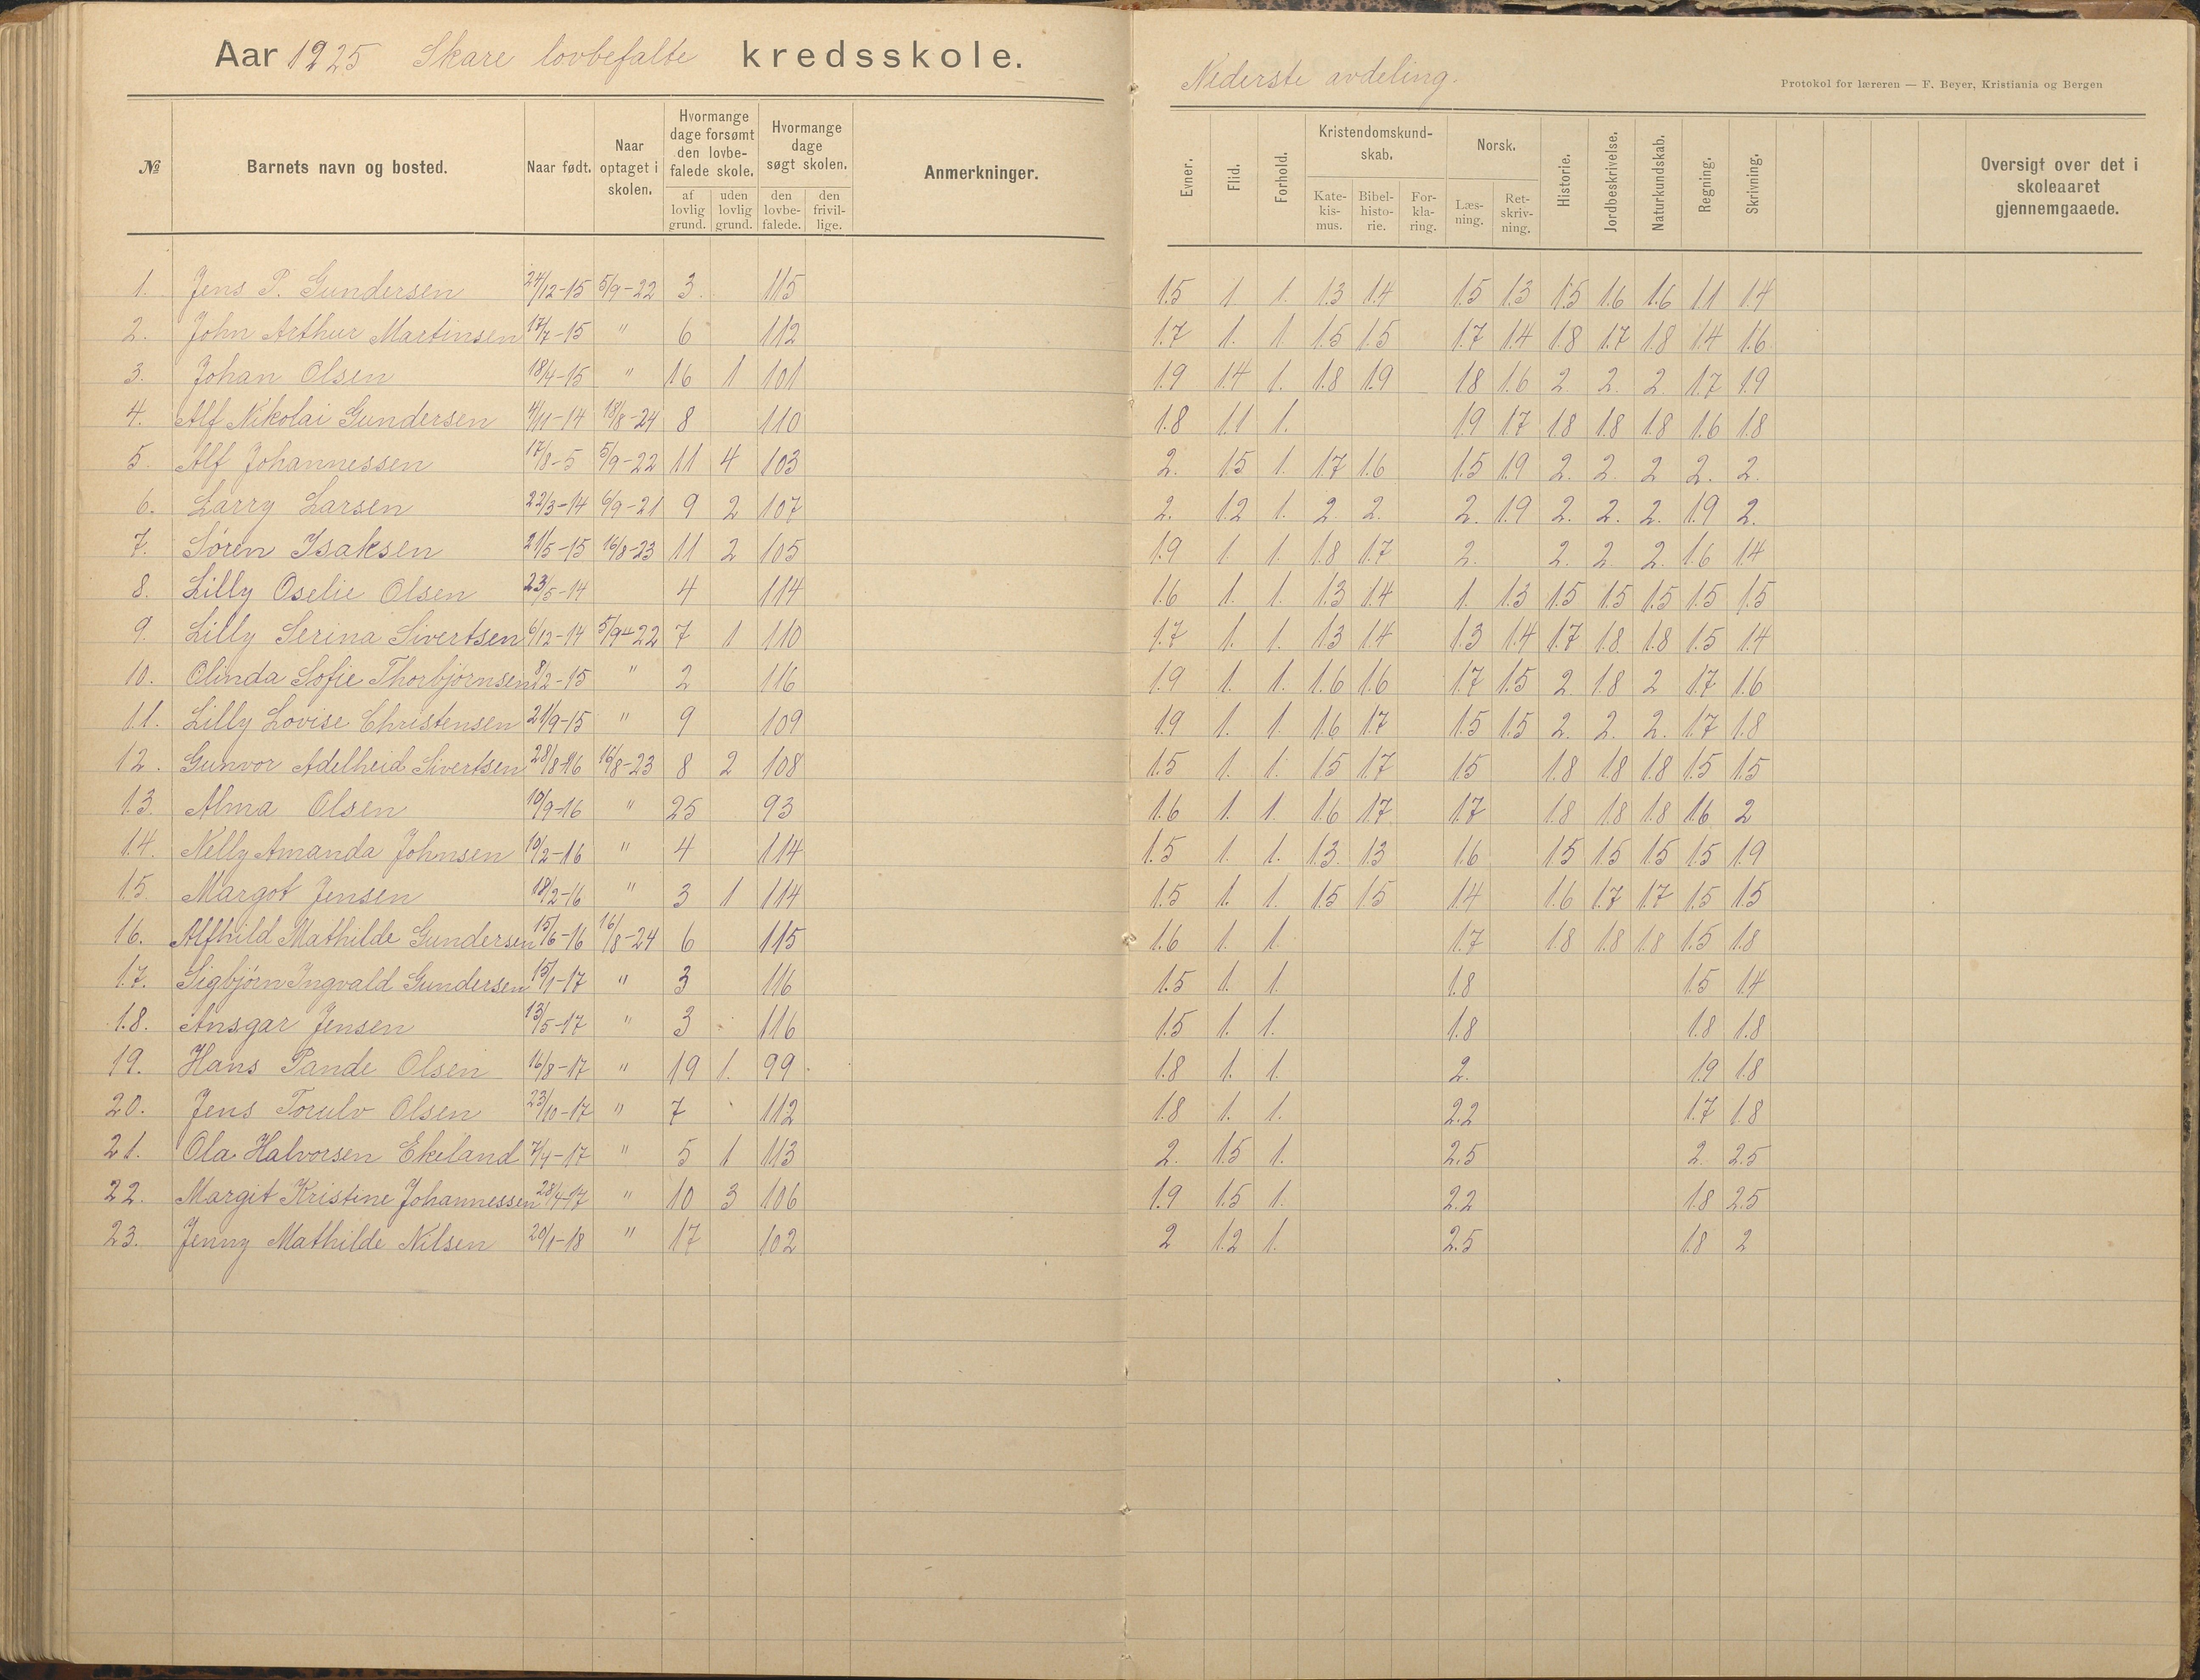 Aar 1925 Skare lovbefalte kredsskole.
Nederste avdeling.
Protokol for læreren — F. Beyer, Kristiania og Bergen
№ Barnets navn og bosted. Naar født. Naar optaget i skolen. Hvormange dage forsømt den lovbefalede skole. af lovlig grund. uden lovlig grund. Hvormange dage søgt skolen. den lovbefalede. den frivillige. Anmerkninger. Evner. Flid. Forhold. Kristendomskundskab. Katekismus. Bibelhistorie. Forklaring. Norsk. Læsning. Retskrivning. Historie. Jordbeskrivelse. Naturkundskab. Regning. Skrivning. Oversigt over det i skoleaaret gjennemgaaede.
1. Jens P. Gundersen 24/12-15 5/9-22 3 115 1.5 1. 1. 1.3 1.4 1.5 1.3 1.5 1.6 1.6 1.1 1.4
2. John Arthur Martinsen 17/7-15 " 6 112 1.7 1. 1 1.5 1.5 1.7 1.4 1.8 1.7 1.8 1.4 1.6
3. Johan Olsen 18/4-15 " 16 1 101 1.9 1.4 1. 1.8 1.9 1.8 1.6 2. 2. 2. 1.7 1.9
4. Alf Nikolai Gundersen 4/11-14 18/8-24 8 110 1.8 1.1 1. 1.9 1.7 1.8 1.8 1.8 1.6 1.8
5. Alf Johannessen 17/8-5 5/9-22 11 4 103 2. 1.5 1. 1.7 1.6 1.5 1.9 2. 2. 2 2. 2.
6. Larry Larsen 22/3-14 6/9-21 9 2 107 2. 1.2 1. 2 2. 2. 1.9 2. 2. 2. 1.9 2.
7. Søren Isaksen 21/5-15 16/8-23 11 2 105 1.9 1. 1. 1.8 1.7 2. 2. 2. 2. 1.6 1.4
8. Lilly Oselie Olsen 23/5-14 4 114 1.6 1. 1. 1.3 1.4 1. 1.3 1.5 1.5 1.5 1.5 1.5
9. Lilly Serina Sivertsen 6/12-14 5/9-22 7 1 110 1.7 1. 1. 1.3 1.4 1.3 1.4 1.7 1.8 1.8 1.5 1.4
10. Olinda Sofie Thorbjørnsen 8/2-15 " 2 116 1.9 1. 1. 1.6 1.6 1.7 1.5 2. 1.8 2 1.7 1.6
11. Lilly Lovise Christensen 21/9-15 " 9 109 1.9 1. 1. 1.6 1.7 1.5 1.5 2. 2. 2. 1.7 1.8
12. Gunvor Adelheid Sivertsen 28/8-16 16/8-23 8 2 108 1.5 1. 1. 1.5 1.7 1.5 1.8 1.8 1.8 1.5 1.5
13. Alma Olsen 10/9-16 " 25 93 1.6 1. 1. 1.6 1.7 1.7 1.8 1.8 1.8 1.6 2
14. Nelly Amanda Johnsen 10/2-16 " 4 114 1.5 1. 1. 1.3. 1.3 1.6 1.5 1.5 1.5 1.5 1.9
15. Margot Jensen 18/2-16 " 3 1 114 1.5 1. 1. 1.5 1.5 1.4 1.6 1.7 1.7 1.5 1.5
16. Alfhild Mathilde Gundersen 15/6-16 16/8-24 6 115 1.6 1. 1. 1.7 1.8 1.8 1.8 1.5 1.8
17. Sigbjørn Ingvald Gundersen 15/1-17 " 3 116 1.5 1. 1. 1.8 1.5 1.4
18. Ansgar Jensen 13/5-17 " 3 116 1.5 1. 1. 1.8 1.8 1.8
19. Hans Pande Olsen 16/8-17 " 19 1. 99 1.8 1. 1. 2. 1.9 1.8
20. Jens Torulv Olsen 23/10-17 " 7 112 1.8 1. 1. 2.2 1.7 1.8
21. Ola Halvorsen Ekeland 7/4-17 " 5 1 113 2. 1.5 1. 2.5 2. 2.5
22. Margit Kristine Johannessen 28/4-17 " 10 3 106 1.9 1.5 1. 2.2 1.8 2.5
23. Jenny Mathilde Nilsen 20/1-18 " 17 102 2 1.2 1. 2.5 1.8 2